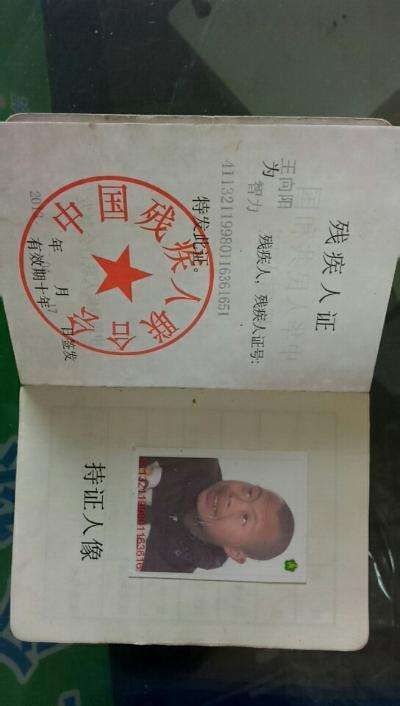 残疾人证
王向阳
为 智力 残疾人，残疾人证号:
41132119980116361651
特发此证。
中国残疾人联合会
年 月 日签发
有效期十年
持证人像